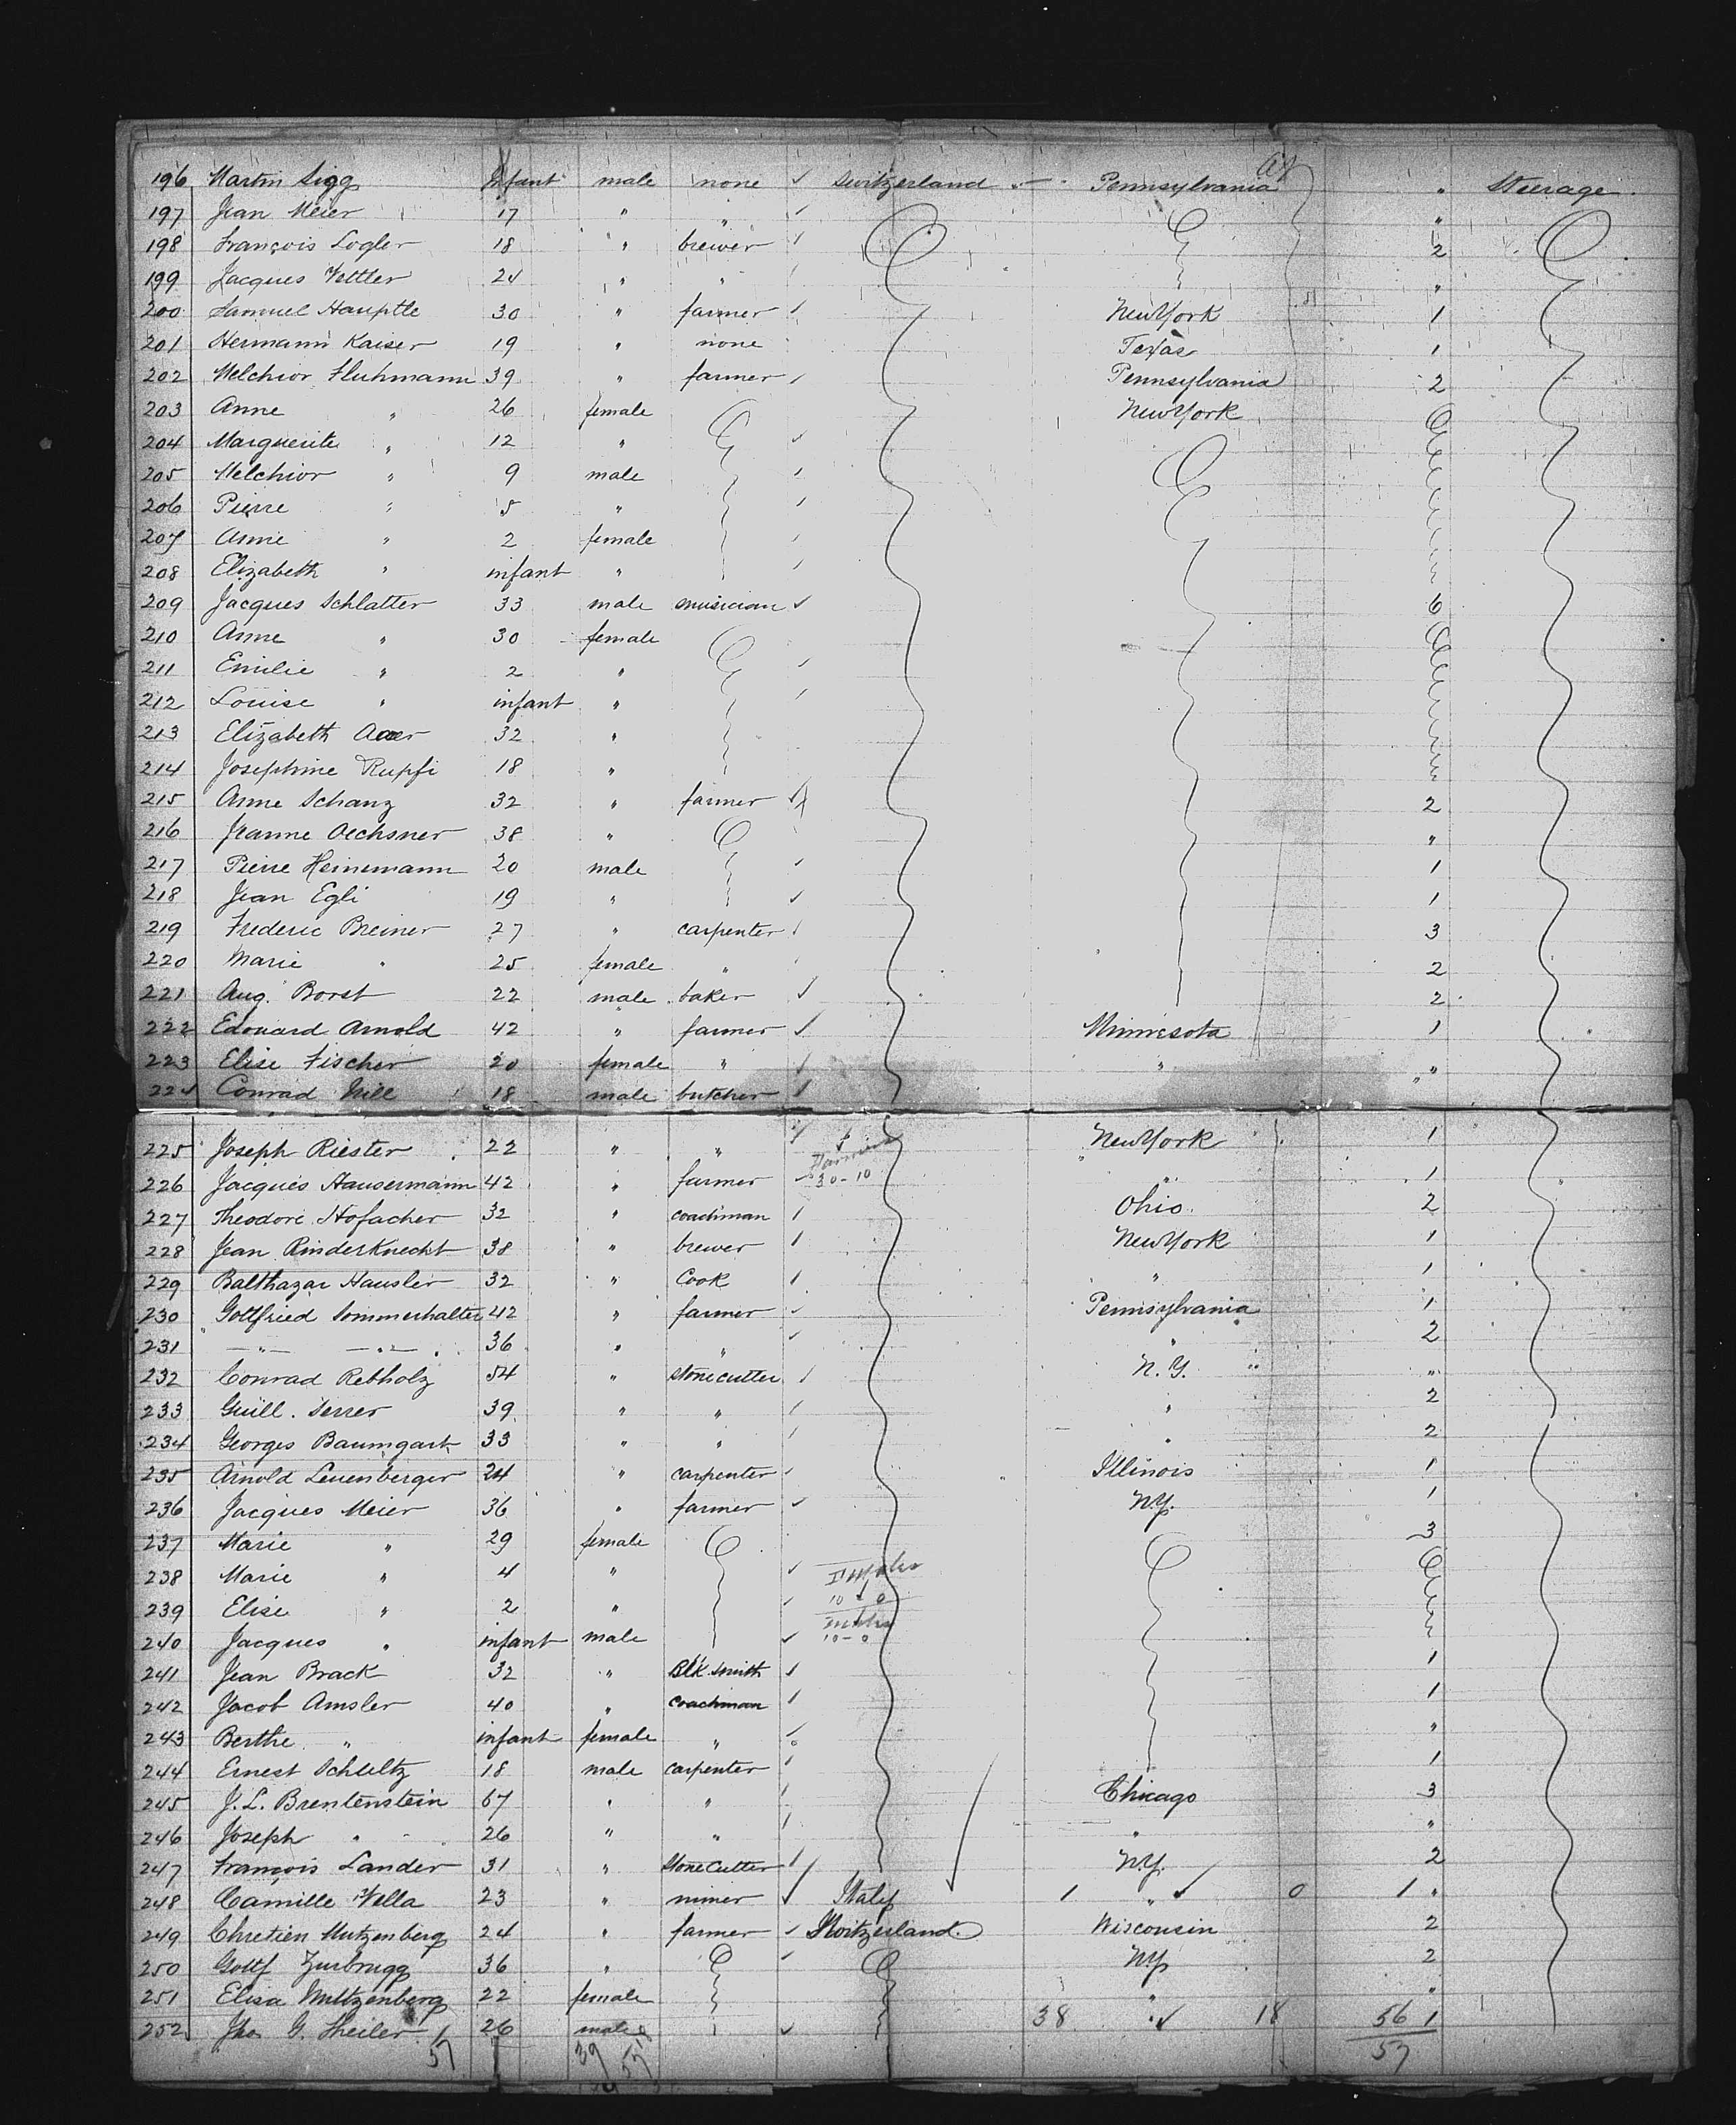 196 Martin Sigg Infant male none ✓ Switzerland Pennsylvania " Steerage
197 Jean Meier 17 " " "
198 François Logler 18 " brewer 2
199 Jacques Vettler 24 " " "
200 Samuel Hauptle 30 " farmer New York 1
201 Hermann Kaiser 19 " none Texas 1
202 Melchior Fluhmann 39 " farmer Pennsylvania 2
203 Anne " 26 female New York
204 Marguerite " 12 "
205 Melchior " 9 male
206 Pierre " 5 "
207 Anne " 2 female
208 Elizabeth " infant "
209 Jacques Schlatter 33 male musician ✓ 6
210 Anne " 30 female
211 Emilie " 2 "
212 Louise " infant "
213 Elizabeth 32 "
214 Josephine Rupfi 18 "
215 Anne Schanz 32 " farmer 2
216 Jeanne Oechsner 38 " "
217 Pierre Heinemann 20 male 1
218 Jean Egli 19 " 1
219 Frederic Breiner 27 " carpenter 3
220 Marie " 25 female " 2
221 Aug. Borst 22 male baker ✓ 2
222 Edouard Arnold 42 " farmer ✓ Minnesota 1
223 Elise Fischer 20 female " " "
224 Conrad Nill 18 male butcher "
225 Joseph Riester 22 " " New York 1
226 Jacques Hausermann 42 " farmer 30-10 " 1
227 Theodore Hofacher 32 " coachman Ohio 2
228 Jean Rinderknecht 38 " brewer New York 1
229 Balthazar Hausler 32 " Cook " 1
230 Gottfried Sommerhalter 42 " farmer Pennsylvania 1
231 " " 36 " " " 2
232 Conrad Rebholz 54 " stonecutter N.Y. "
233 Guill. Serrer 39 " " " 2
234 Georges Baumgart 33 " " " 2
235 Arnold Leuenberger 24 " carpenter Illinois 1
236 Jacques Meier 36 " farmer N.Y. 1
237 Marie " 29 female 3
238 Marie " 4 "
239 Elise " 2 "
240 Jacques " infant male ✓ 10-0
241 Jean Brack 32 " Blk smith 1
242 Jacob Amsler 40 " coachman 1
243 Berthe " infant female " "
244 Ernest Schultz 18 male carpenter 1
245 J. L. Brentenstein 67 " " Chicago 3
246 Joseph " 26 " " " "
247 François Lander 31 " Stone Cutter N.Y. 2
248 Camille Vella 23 " miner ✓ Italy 1 " ✓ 0 1 "
249 Chretien Mutzenberg 24 " farmer Switzerland Wisconsin 2
250 Gottf Zurbrugg 36 " NY 2
251 Elisa Muttzenberg 22 female " "
252 Jho G. Theiler 26 male ✓ 38 " ✓ 18 56 1
57 39 57